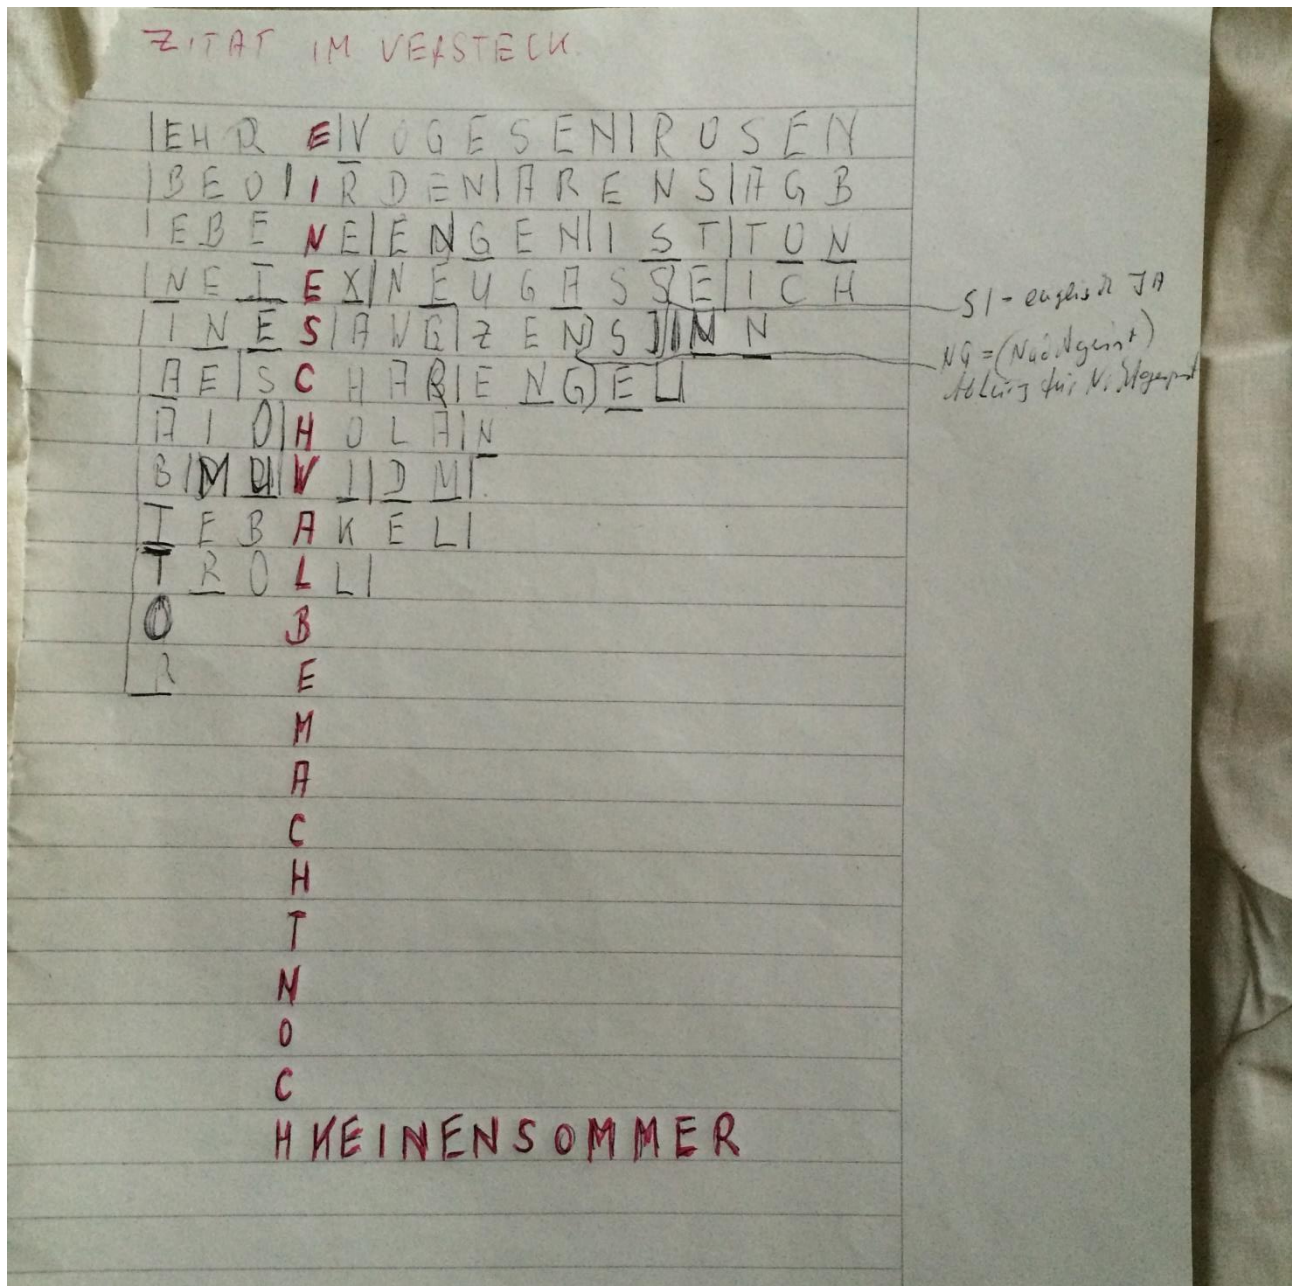 ZITAT IM VERSTECK.
|EHR E|VOGESEN|ROSEN
|BEO|IRDEN|ARENS|AGB
|EBENE|ENGEN|IST|TUN
|NEIEX|NEUGASSE|ICH
|INES|AVG|ZENSJINN
|AE|SCHAR|ENGEL|
AIO|HOLAN
B|MU|VI|DM|
IEBAKEL|
TROLL|
O B
R E
M
A
C
H
T
N
O
C
HKEINENSOMMER
SI - englisch JA
NG =